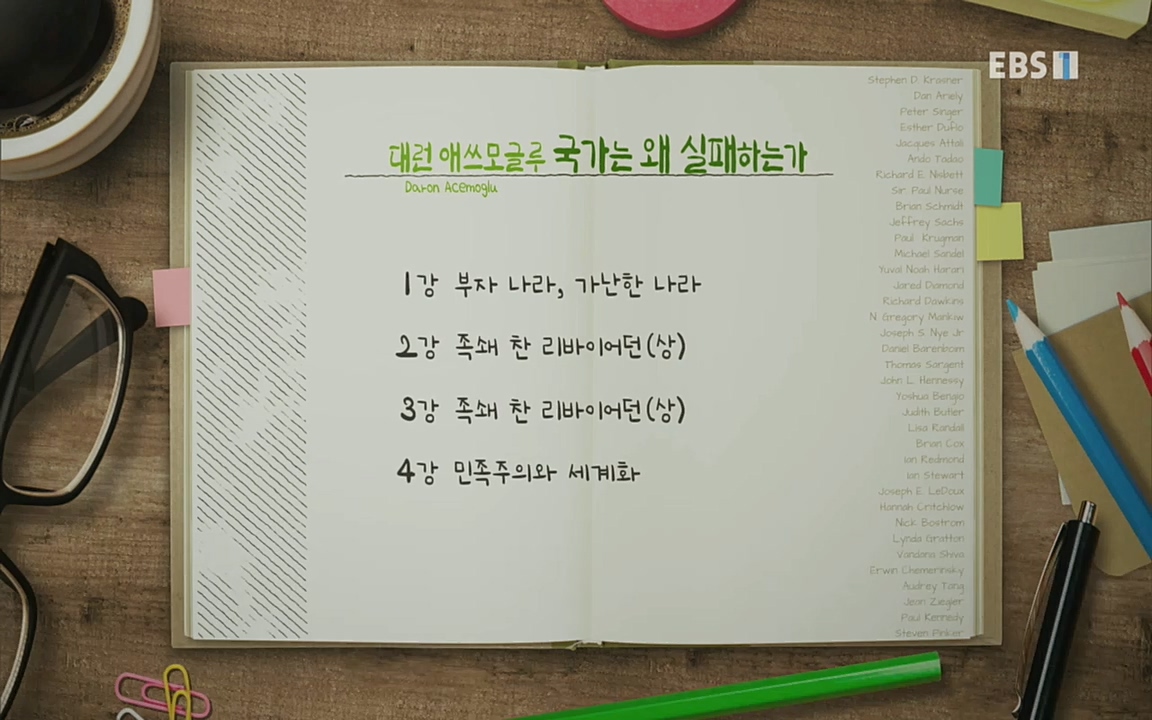 EBS 1
대런 애쓰모글루 국가는 왜 실패하는가
Daron Acemoglu
1강 부자 나라, 가난한 나라
2강 족쇄 찬 리바이어던(상)
3강 족쇄 찬 리바이어던(상)
4강 민족주의와 세계화
Stephen D. Krasner
Dan Ariely
Peter Singer
Esther Duflo
Jacques Attali
Ando Tadao
Richard E. Nisbett
Sir. Paul Nurse
Brian Schmidt
Jeffrey Sachs
Paul Krugman
Michael Sandel
Yuval Noah Harari
Jared Diamond
Richard Dawkins
N. Gregory Mankiw
Joseph S. Nye Jr
Daniel Barenboim
Thomas Sargent
John L. Hennessy
Yoshua Bengio
Judith Butler
Lisa Randall
Brian Cox
Ian Redmond
Ian Stewart
Joseph E. LeDoux
Hannah Critchlow
Nick Bostrom
Lynda Gratton
Vandana Shiva
Erwin Chemerinsky
Audrey Tang
Jean Ziegler
Paul Kennedy
Steven Pinker